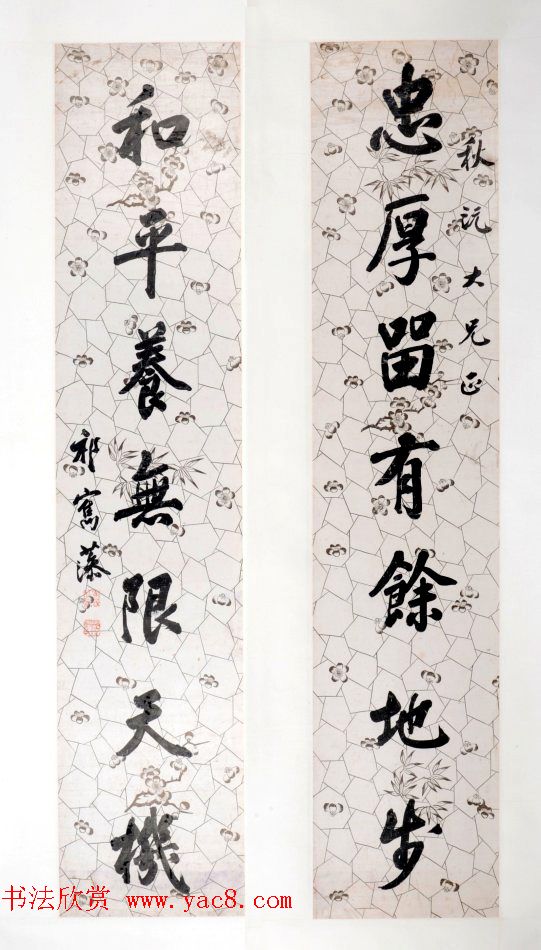 秋沅大兄正
忠厚留有餘地步
和平養無限天機
祁寯藻
书法欣赏 www.yac8.com